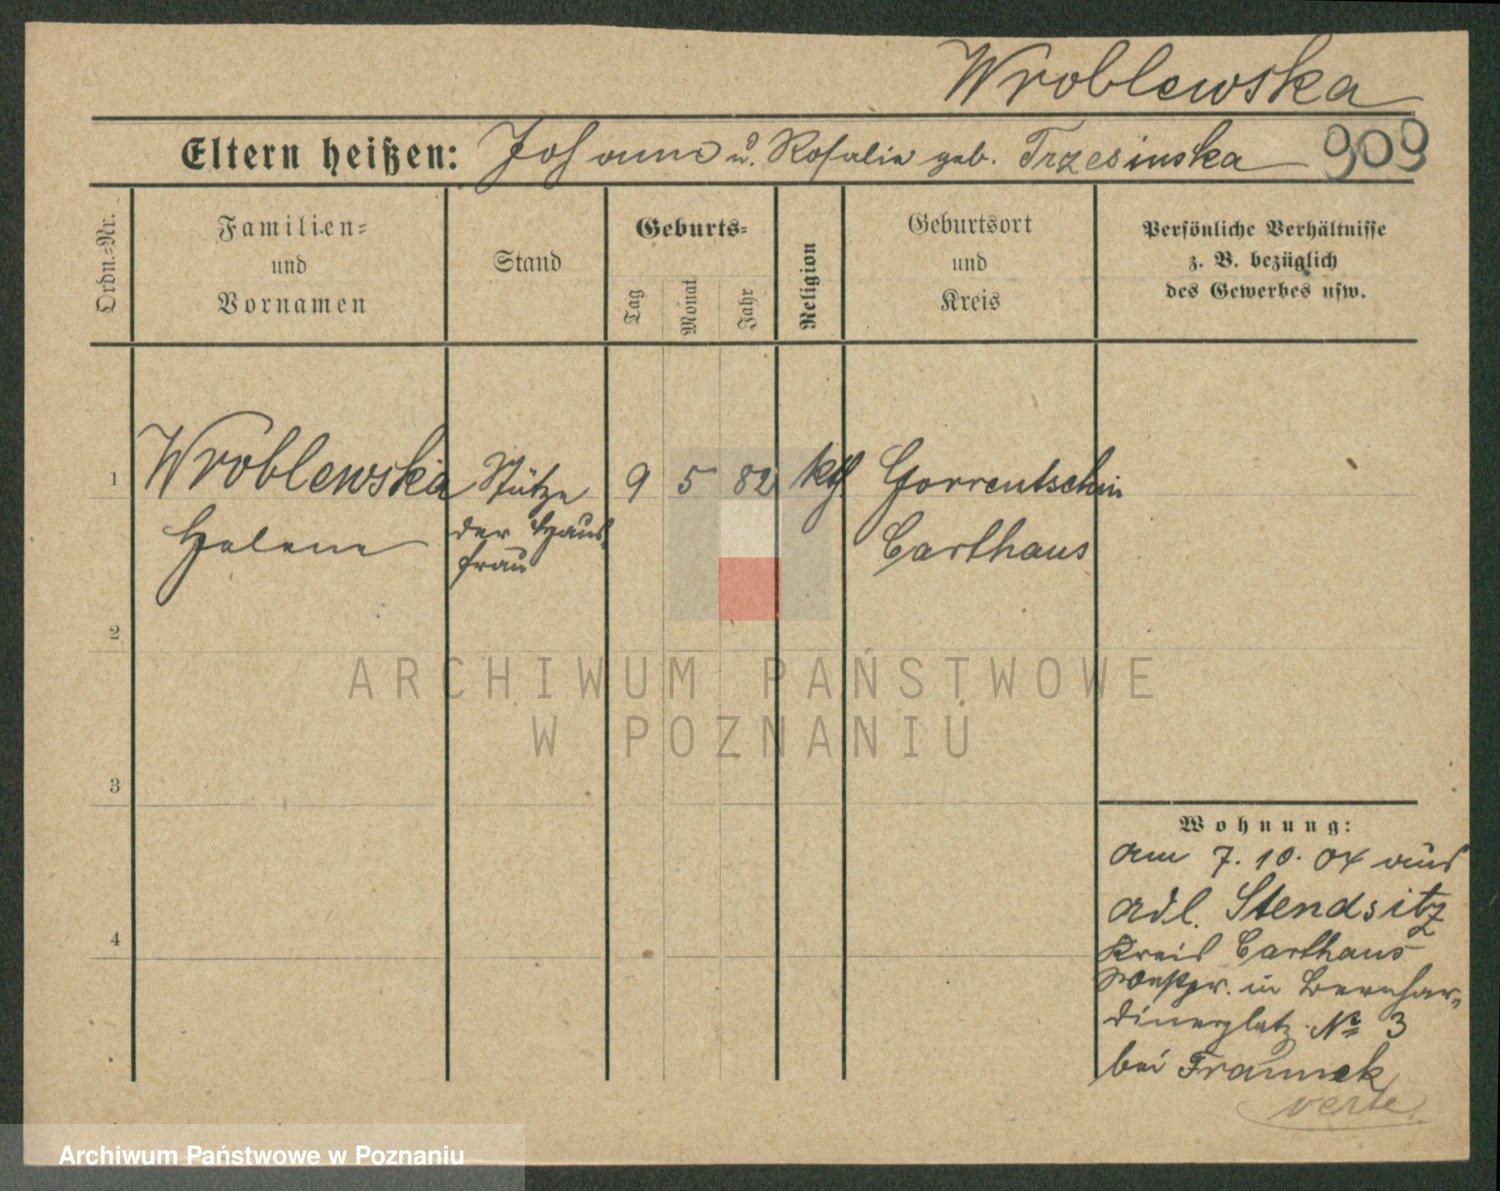 Wroblewska
Eltern heißen: Johann u. Rosalie geb. Trzesinska 909
Ordn.-Nr.
Familien-
und
Vornamen
Stand
Geburts-
Tag
Monat
Jahr
Religion
Geburtsort
und
Kreis
Persönliche Verhältnisse
z. B. bezüglich
des Gewerbes usw.
1 Wroblewska Stütze 9 5 82 kth Gorrentschin
Helene der Haus-
frau
Carthaus
2
3
4
ARCHIWUM PAŃSTWOWE
W POZNANIU
Wohnung:
am 7.10.04 aus
adl. Stendsitz
Kreis Carthaus
Westpr. in Bernhar-
dinerplatz No 3
bei
verte
Archiwum Państwowe w Poznaniu